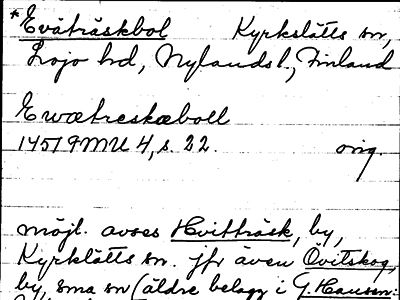 *Eväträskbol Kyrkslätts sn,
Lojo hd, Nylands l., Finland
Ewætreskæboll
1451 FMU 4, s. 22. orig.
möjl. avses Hvitträsk, by,
Kyrkslätts sn. jfr även Övitskog,
by, sma sn (äldre belägg i G. Hausen: